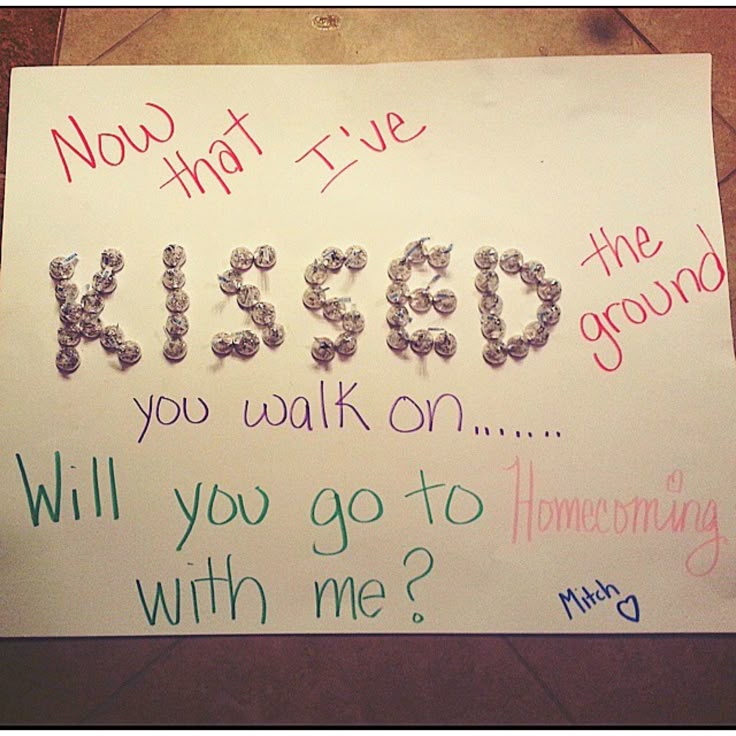 Now that I've
KISSED the ground
you walk on.......
Will you go to Homecoming
with me?
Mitch